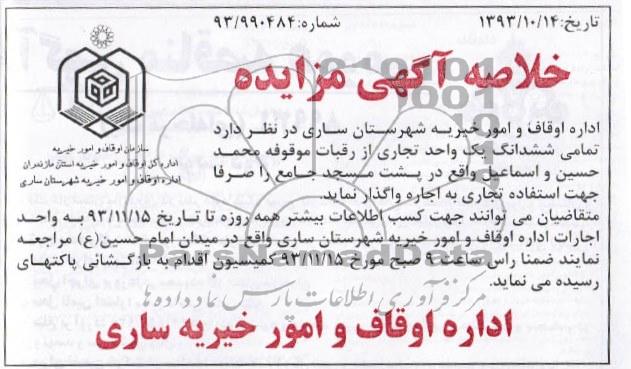 تاریخ: ۱۳۹۳/۱۰/۱۴
شماره: ۹۳/۹۹۰۴۸۴
خلاصه آگهی مزایده
سازمان اوقاف و امور خیریه
اداره کل اوقاف و امور خیریه استان مازندران
اداره اوقاف و امور خیریه شهرستان ساری
اداره اوقاف و امور خیریه شهرستان ساری در نظر دارد
تمامی ششدانگ یک واحد تجاری از رقبات موقوفه محمد
حسین و اسماعیل واقع در پشت مسجد جامع را صرفا
جهت استفاده تجاری به اجاره واگذار نماید.
متقاضیان می توانند جهت کسب اطلاعات بیشتر همه روزه تا تاریخ ۹۳/۱۱/۱۵ به واحد
اجارات اداره اوقاف و امور خیریه شهرستان ساری واقع در میدان امام حسین(ع) مراجعه
نمایند ضمنا راس ساعت ۹ صبح مورخ ۹۳/۱۱/۱۵ کمیسیون اقدام به بازگشائی پاکتهای
رسیده می نماید.
اداره اوقاف و امور خیریه ساری
ParsNamadData
مرکز فرآوری اطلاعات پارس نماد داده ها